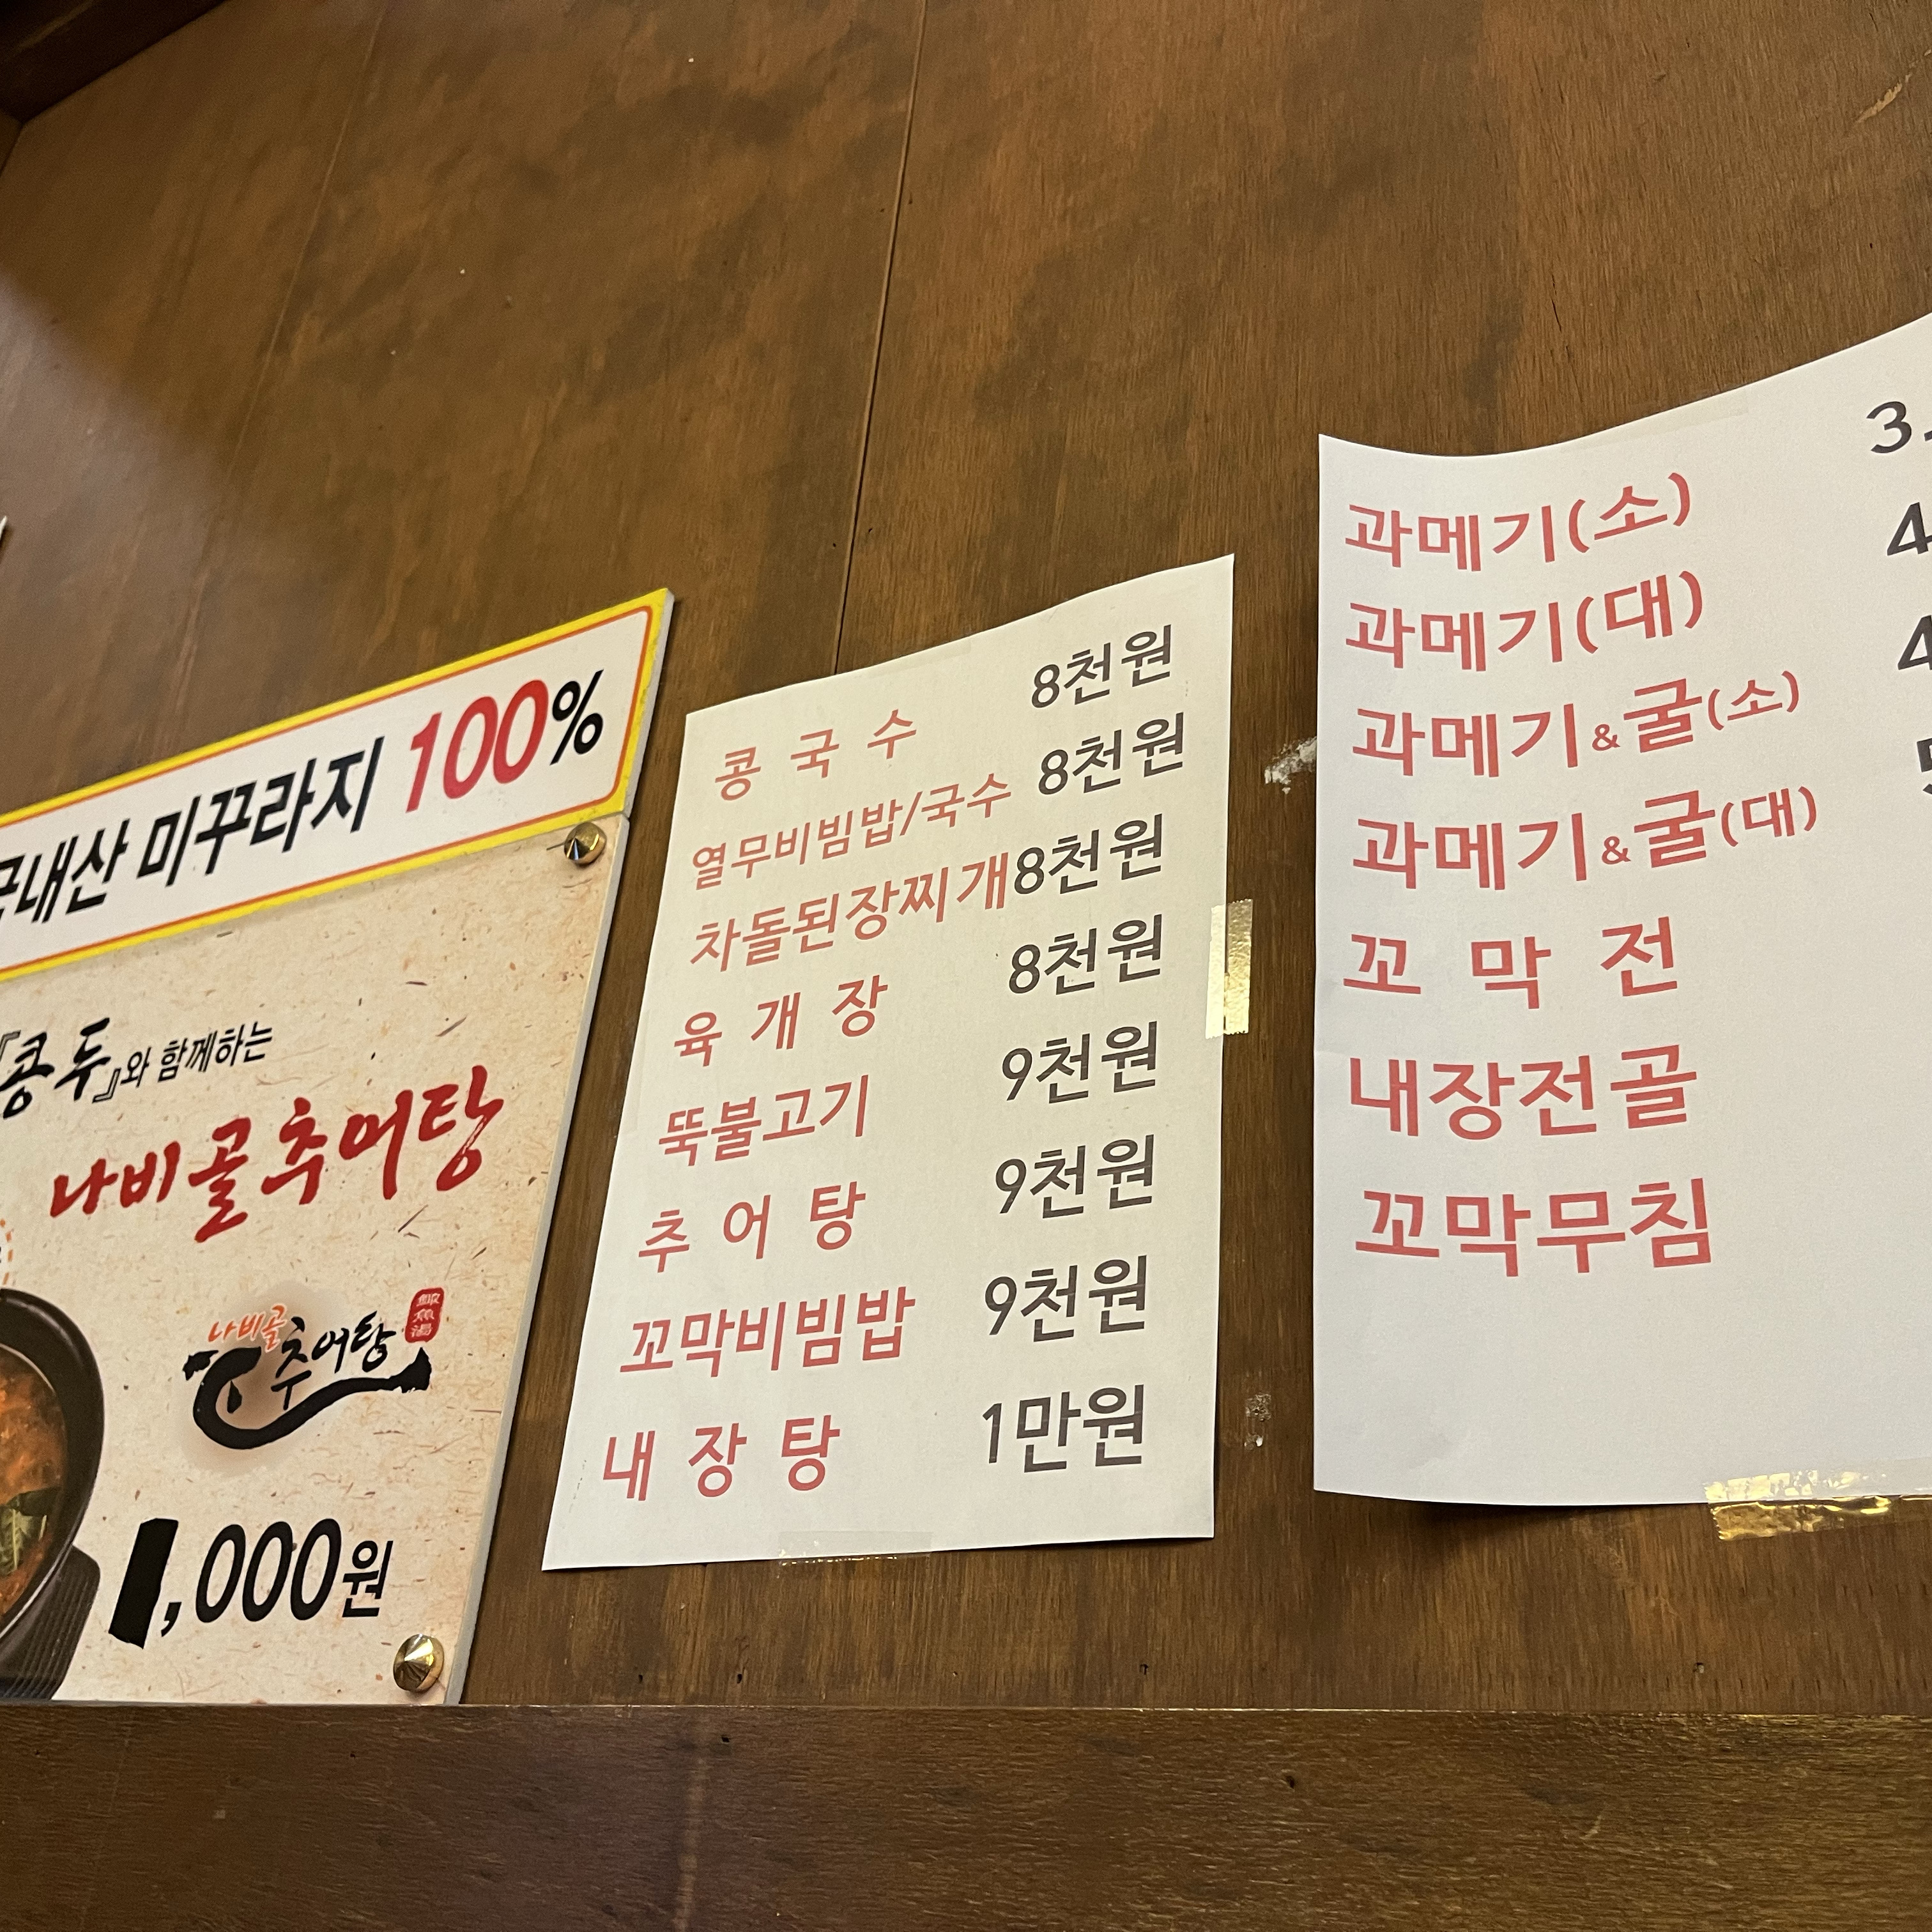 국내산 미꾸라지 100%
『콩두』와 함께하는
나비골추어탕
나비골
추어탕
鰍魚湯
,000원
콩 국 수 8천원
열무비빔밥/국수 8천원
차돌된장찌개 8천원
육 개 장 8천원
뚝불고기 9천원
추 어 탕 9천원
꼬막비빔밥 9천원
내 장 탕 1만원
과메기(소) 3.
과메기(대) 4
과메기&굴(소) 4
과메기&굴(대)
꼬 막 전
내장전골
꼬막무침